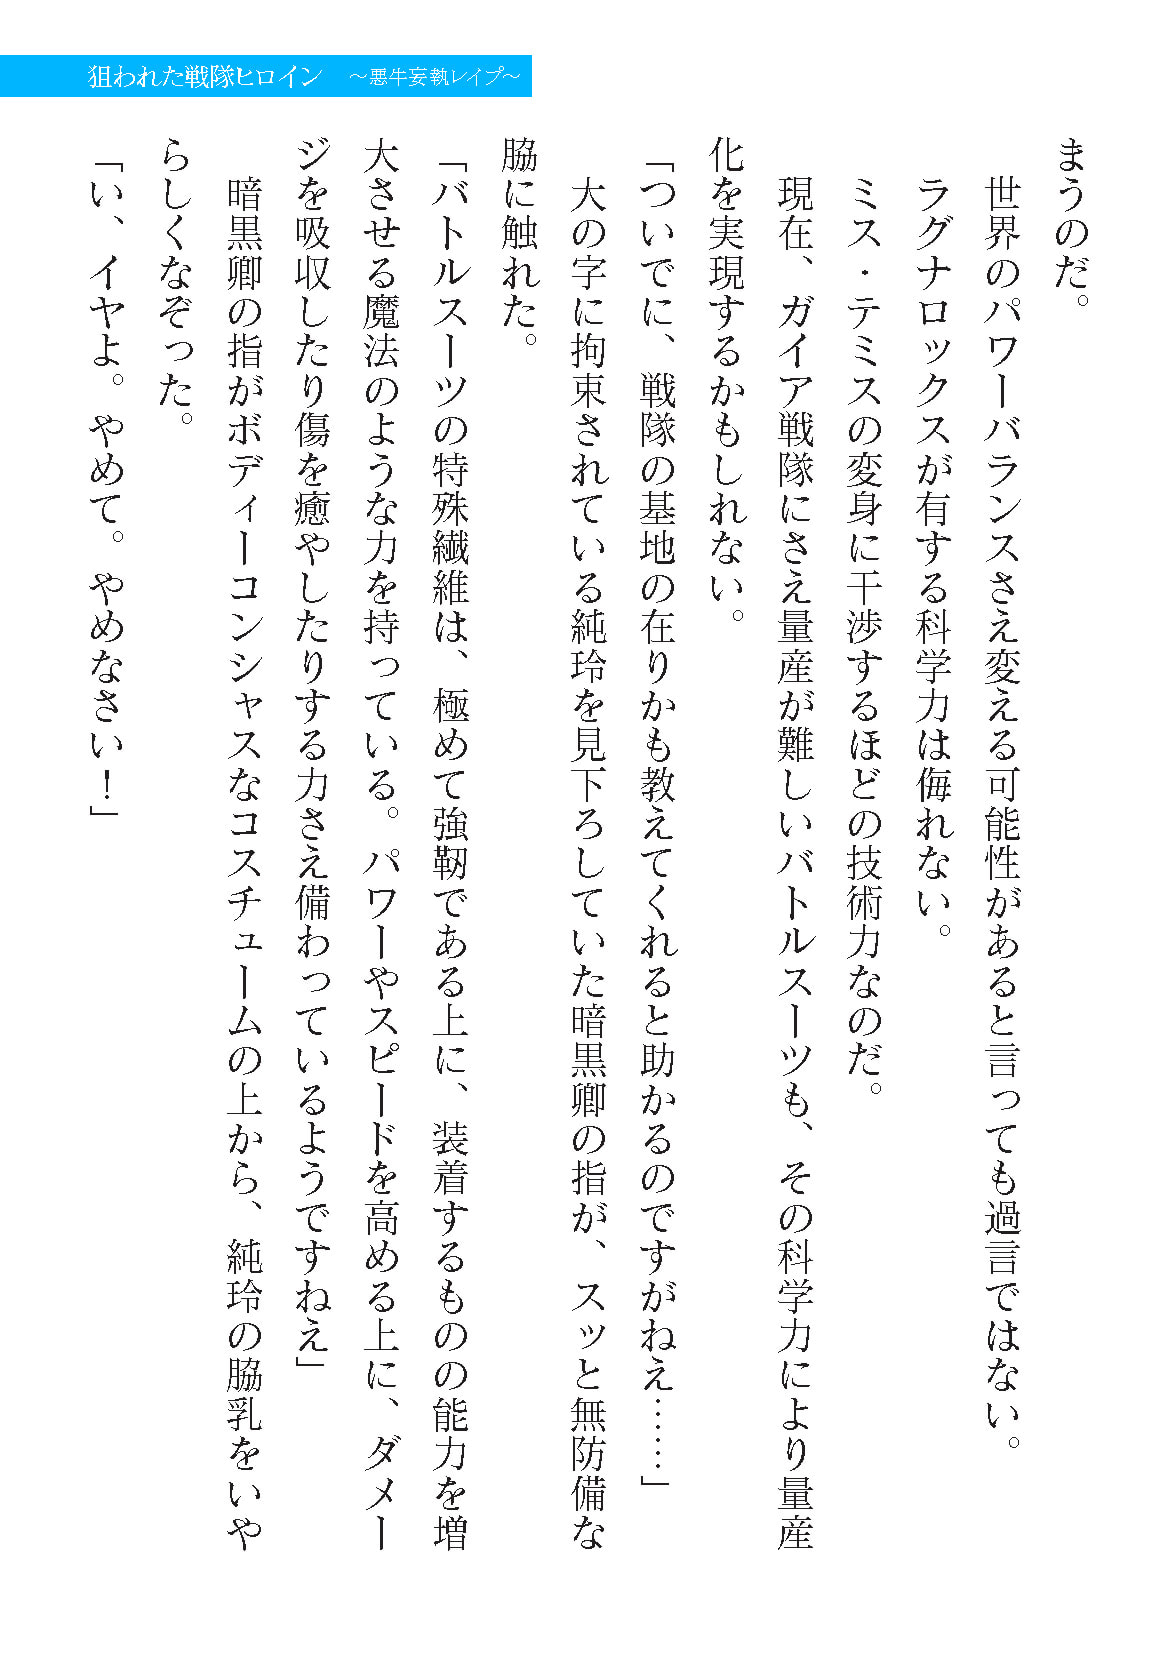 狙われた戦隊ヒロイン　～悪牛妄執レイプ～
まうのだ。
　世界のパワーバランスさえ変える可能性があると言っても過言ではない。
　ラグナロックスが有する科学力は侮れない。
　ミス・テミスの変身に干渉するほどの技術力なのだ。
　現在、ガイア戦隊にさえ量産が難しいバトルスーツも、その科学力により量産
化を実現するかもしれない。
「ついでに、戦隊の基地の在りかも教えてくれると助かるのですがねえ……」
　大の字に拘束されている純玲を見下ろしていた暗黒卿の指が、スッと無防備な
脇に触れた。
「バトルスーツの特殊繊維は、極めて強靭である上に、装着するものの能力を増
大させる魔法のような力を持っている。パワーやスピードを高める上に、ダメー
ジを吸収したり傷を癒やしたりする力さえ備わっているようですねえ」
　暗黒卿の指がボディーコンシャスなコスチュームの上から、純玲の脇乳をいや
らしくなぞった。
「い、イヤよ。やめて。やめなさい！」